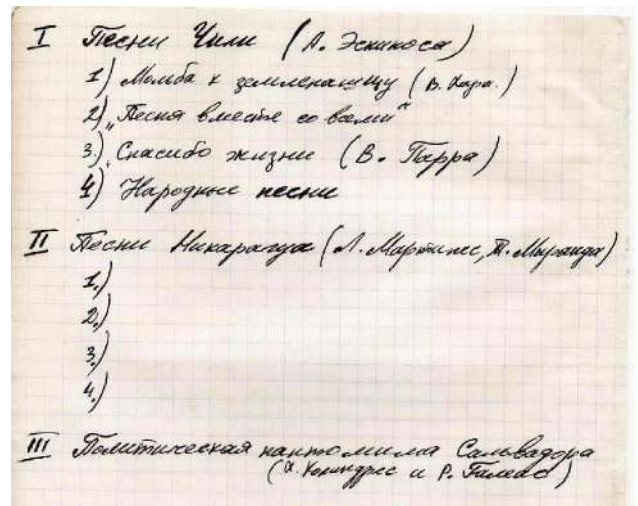 I Песни Чили (А. Эскикоса)
1) Мольба к земленашцу (В. Хара.)
2) „Песня вместе со всеми“
3.) Спасибо жизни (В. Парра)
4) Народные песни
II Песни Никарагуа (Л. Мартинес, Т. Миранда)
1.)
2.)
3.)
4.)
III Политическая пантомима Сальвадора
( и Р. Галеас)